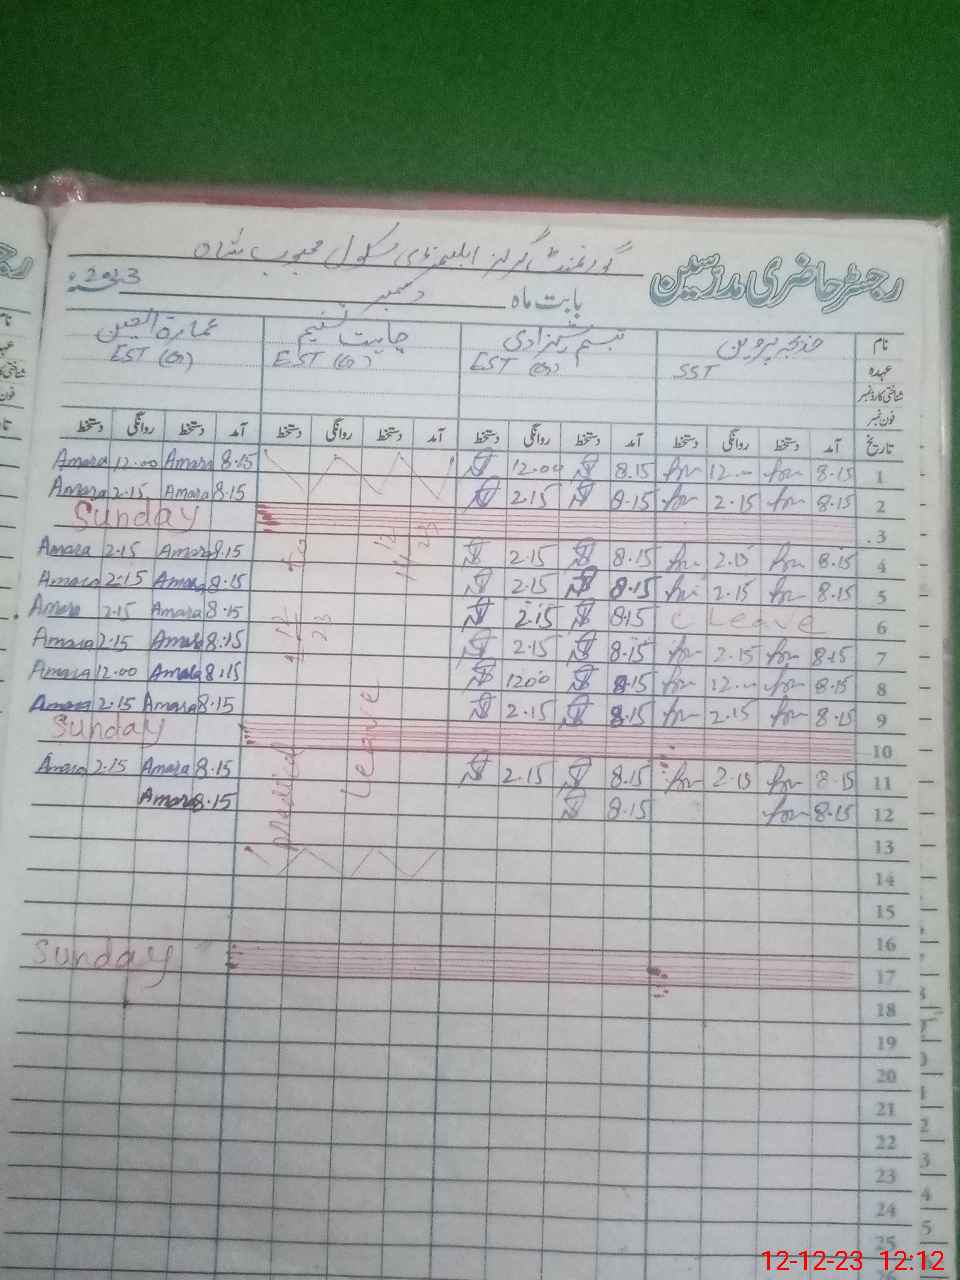 رجسٹر حاضری مدرسین
گورنمنٹ گرلز ایلیمنٹری سکول محبوب شاہ
بابت ماہ دسمبر 2023ء
نام خدیجہ پروین تبسم شہزادی تسنیم
عہدہ SST EST (G) EST (G) EST (G)
شناختی کارڈ نمبر
فون نمبر
تاریخ آمد دستخط روانگی دستخط آمد دستخط روانگی دستخط آمد دستخط روانگی دستخط آمد دستخط روانگی دستخط
1 8.15 12.00 8.15 12.00 8.15 Amara 12.00 Amara
2 8.15 2.15 8.15 2.15 8.15 Amara 2.15 Amara
3 Sunday
4 8.15 2.15 8.15 2.15 8.15 Amara 2.15 Amara
5 8.15 2.15 8.15 2.15 8.15 Amara 2.15 Amara
6 C Leave 8.15 2.15 8.15 Amara 2.15 Amara
7 8.15 2.15 8.15 2.15 8.15 Amara 2.15 Amara
8 8.15 12.00 8.15 1200 8.15 Amara 12.00 Amara
9 8.15 2.15 8.15 2.15 8.15 Amara 2.15 Amara
10 Sunday
11 8.15 2.15 8.15 2.15 8.15 Amara 2.15 Amara
12 8.15 8.15 8.15 Amara
13
14
15
16
17 Sunday
18
19
20
21
22
23
24
25
Leave
to
12-12-23 12:12